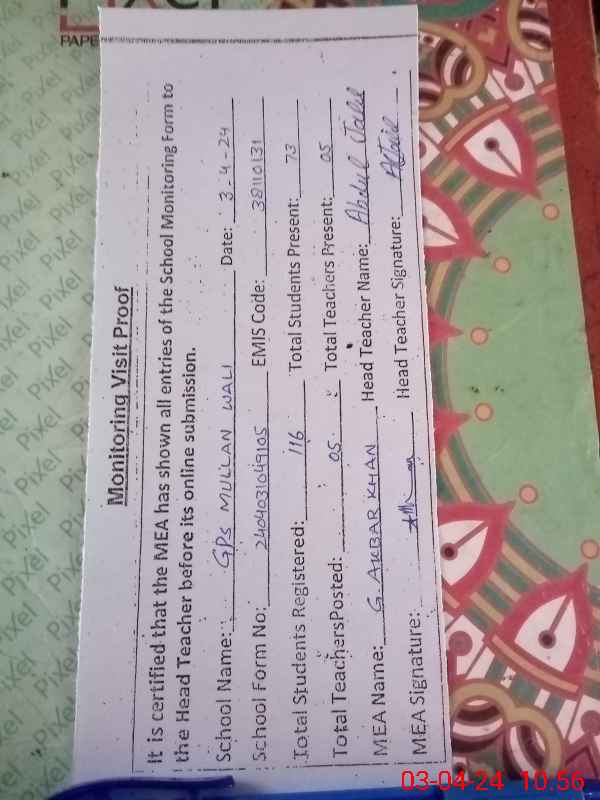 Monitoring Visit Proof
It is certified that the MEA has shown all entries of the School Monitoring Form to
the Head Teacher before its online submission.
School Name: GPS MULLAN WALI Date: 3-4-24
School Form No: 2404031049105 EMIS Code: 38110131
Total Students Registered: 116 Total Students Present: 73
Total TeachersPosted: 05 Total Teachers Present: 05
MEA Name: G. AKBAR KHAN Head Teacher Name: Abdul Jalil
MEA Signature: Head Teacher Signature:
PAPE
Pixel
03-04-24 10:56